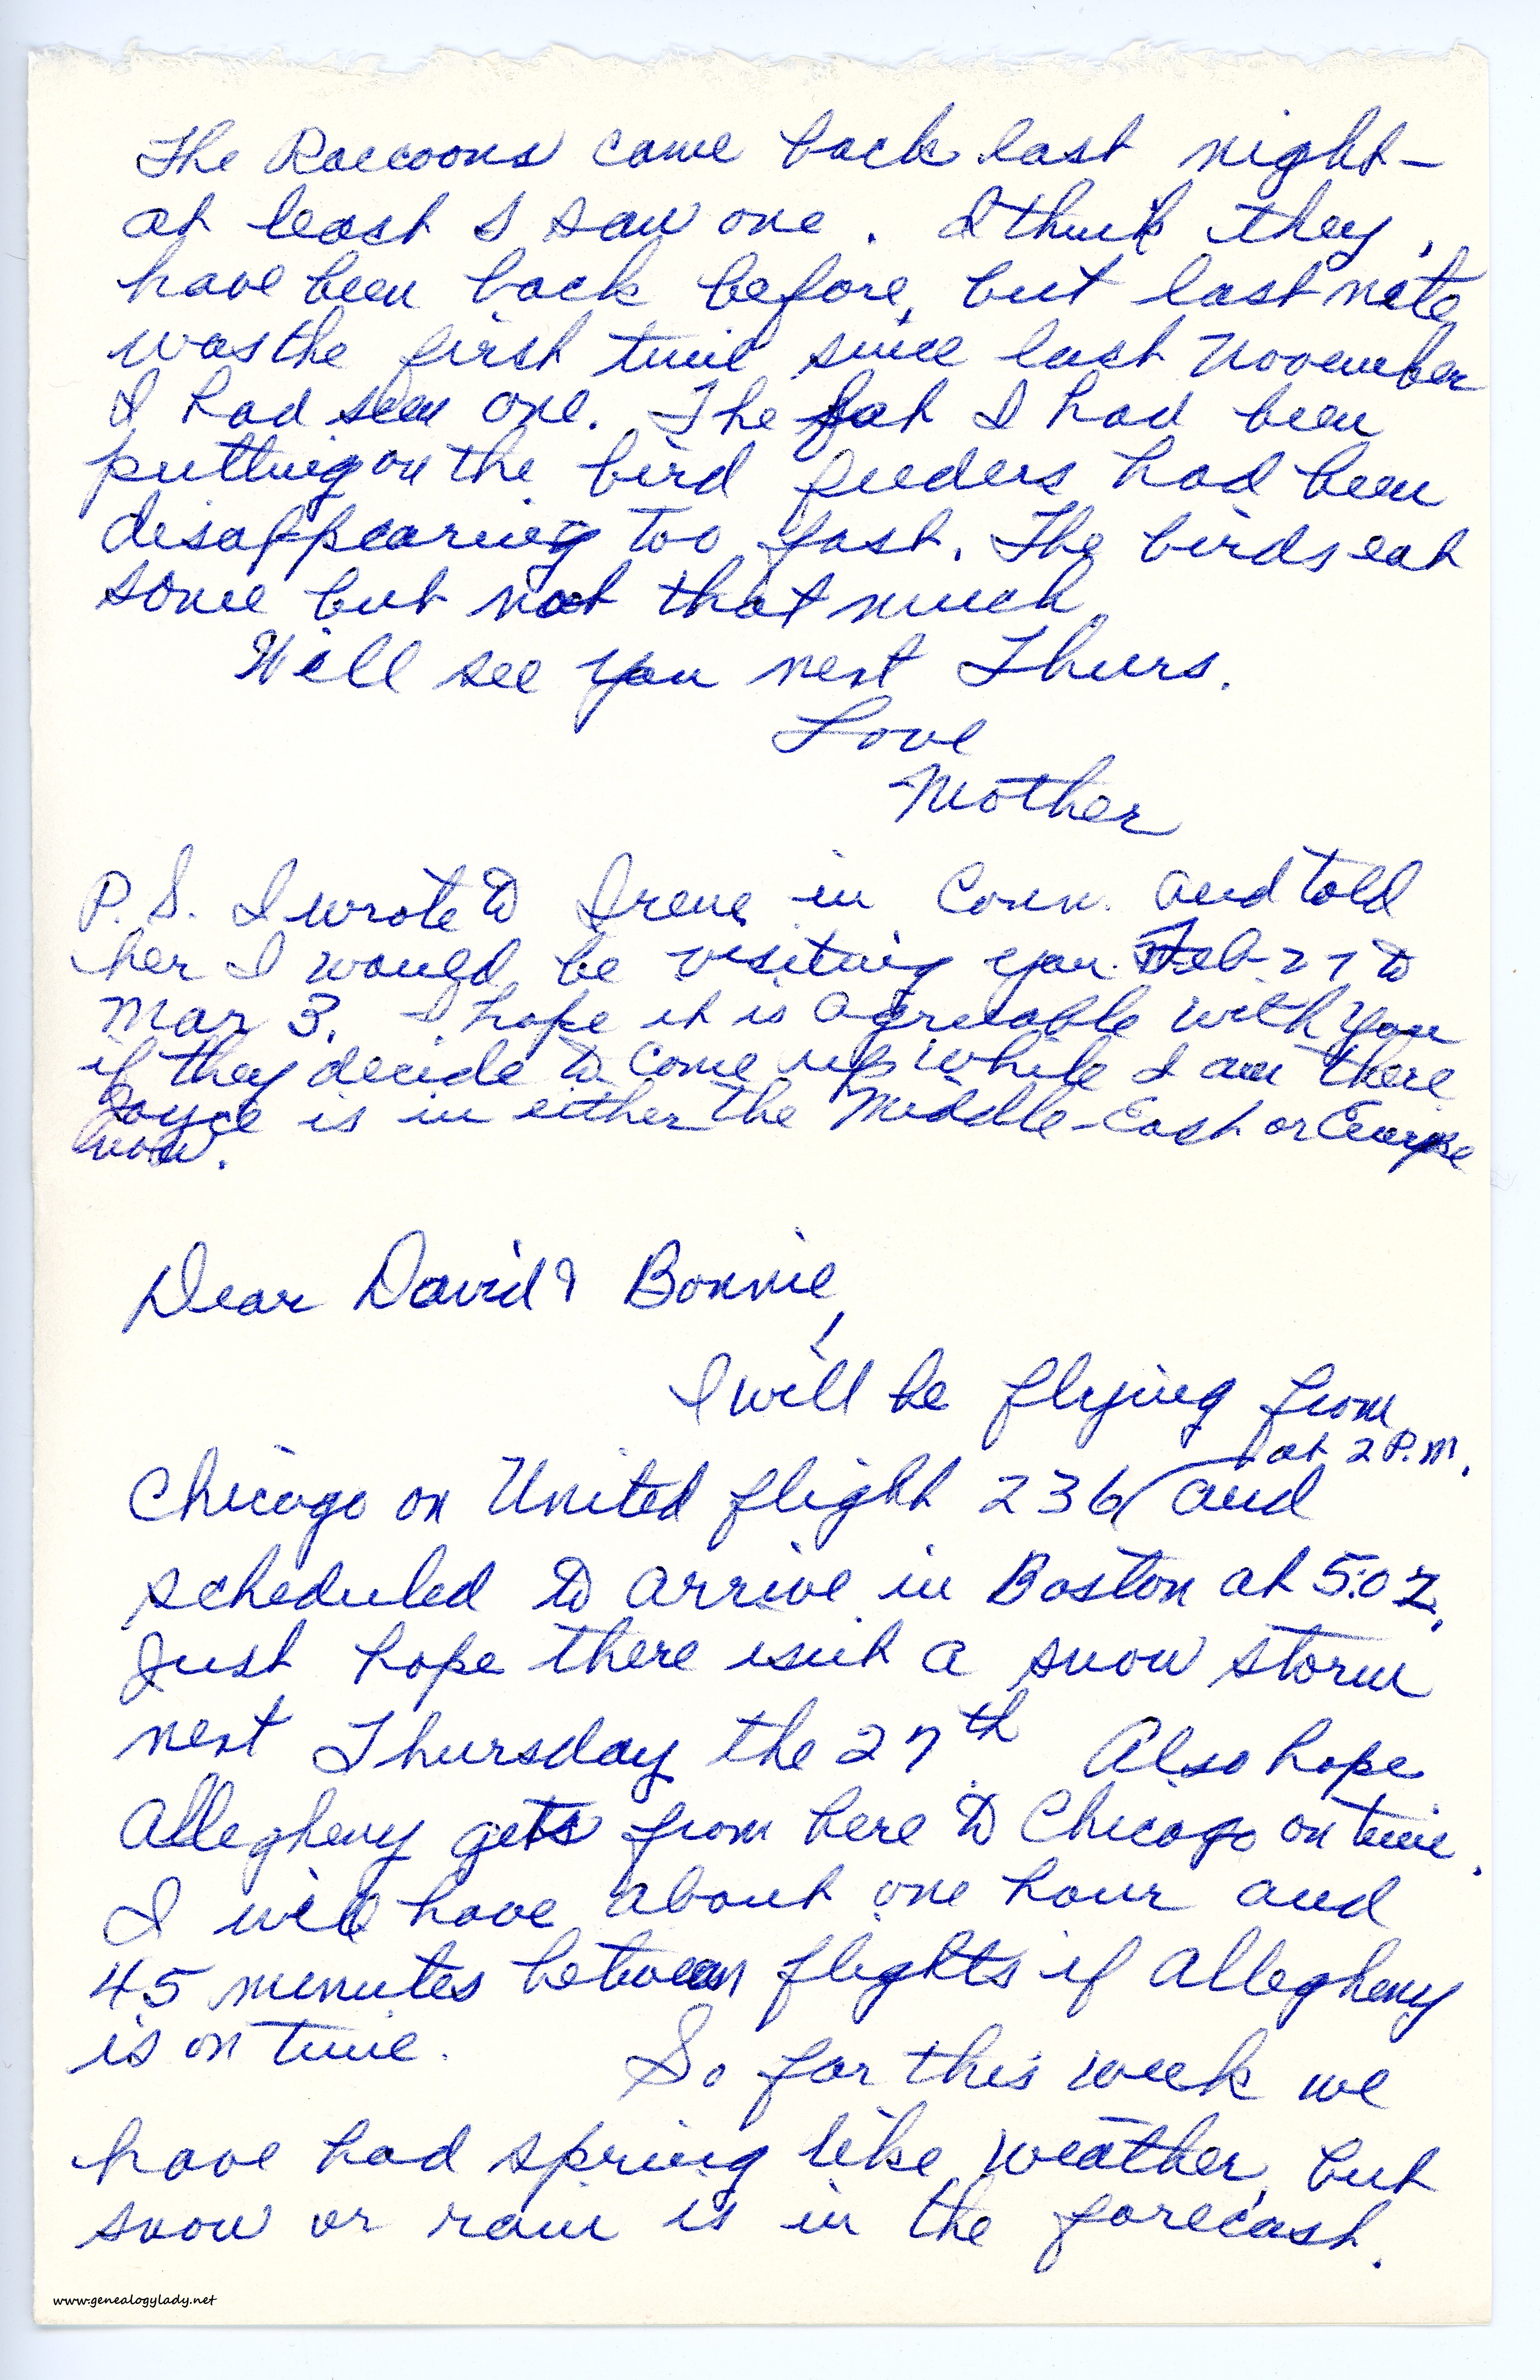 The Raccoons came back last night –
at least I saw one. I think they
have been back before, but last nite
was the first time since last November
I had seen one. The fat I had been
putting on the bird feeders had been
disappearing too fast. The birds eat
some but not that much.
Will see you next Thurs.
Love
Mother
P.S. I wrote to Irene in Conn. and told
her I would be visiting you Feb 27 to
Mar 3. I hope it is agreeable with you
if they decide to come up while I am there
Joyce is in either the Middle-East or Europe
now.
Dear David & Bonnie,
I will be flying from
at 2 P.M.
Chicago on United flight 236 and
scheduled to arrive in Boston at 5:02.
Just hope there isnt a snow storm
next Thursday the 27th. Also hope
Allegheny gets from here to Chicago on time.
I will have about one hour and
45 minutes between flights if Allegheny
is on time.
So far this week we
have had spring like weather, but
snow or rain is in the forecast.
www.genealogylady.net